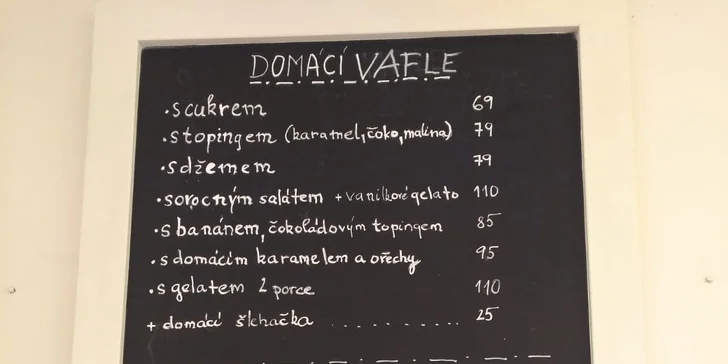 DOMÁCÍ VAFLE
·s cukrem 69
·s topingem (karamel, čoko, malina) 79
·s džemem 79
·s orocným salátem + vanilkové gelato 110
·s banánem, čokoládovým topingem 85
·s domácím karamelem a ořechy 95
·s gelatem 2 porce 110
+ domácí šlehačka ......... 25